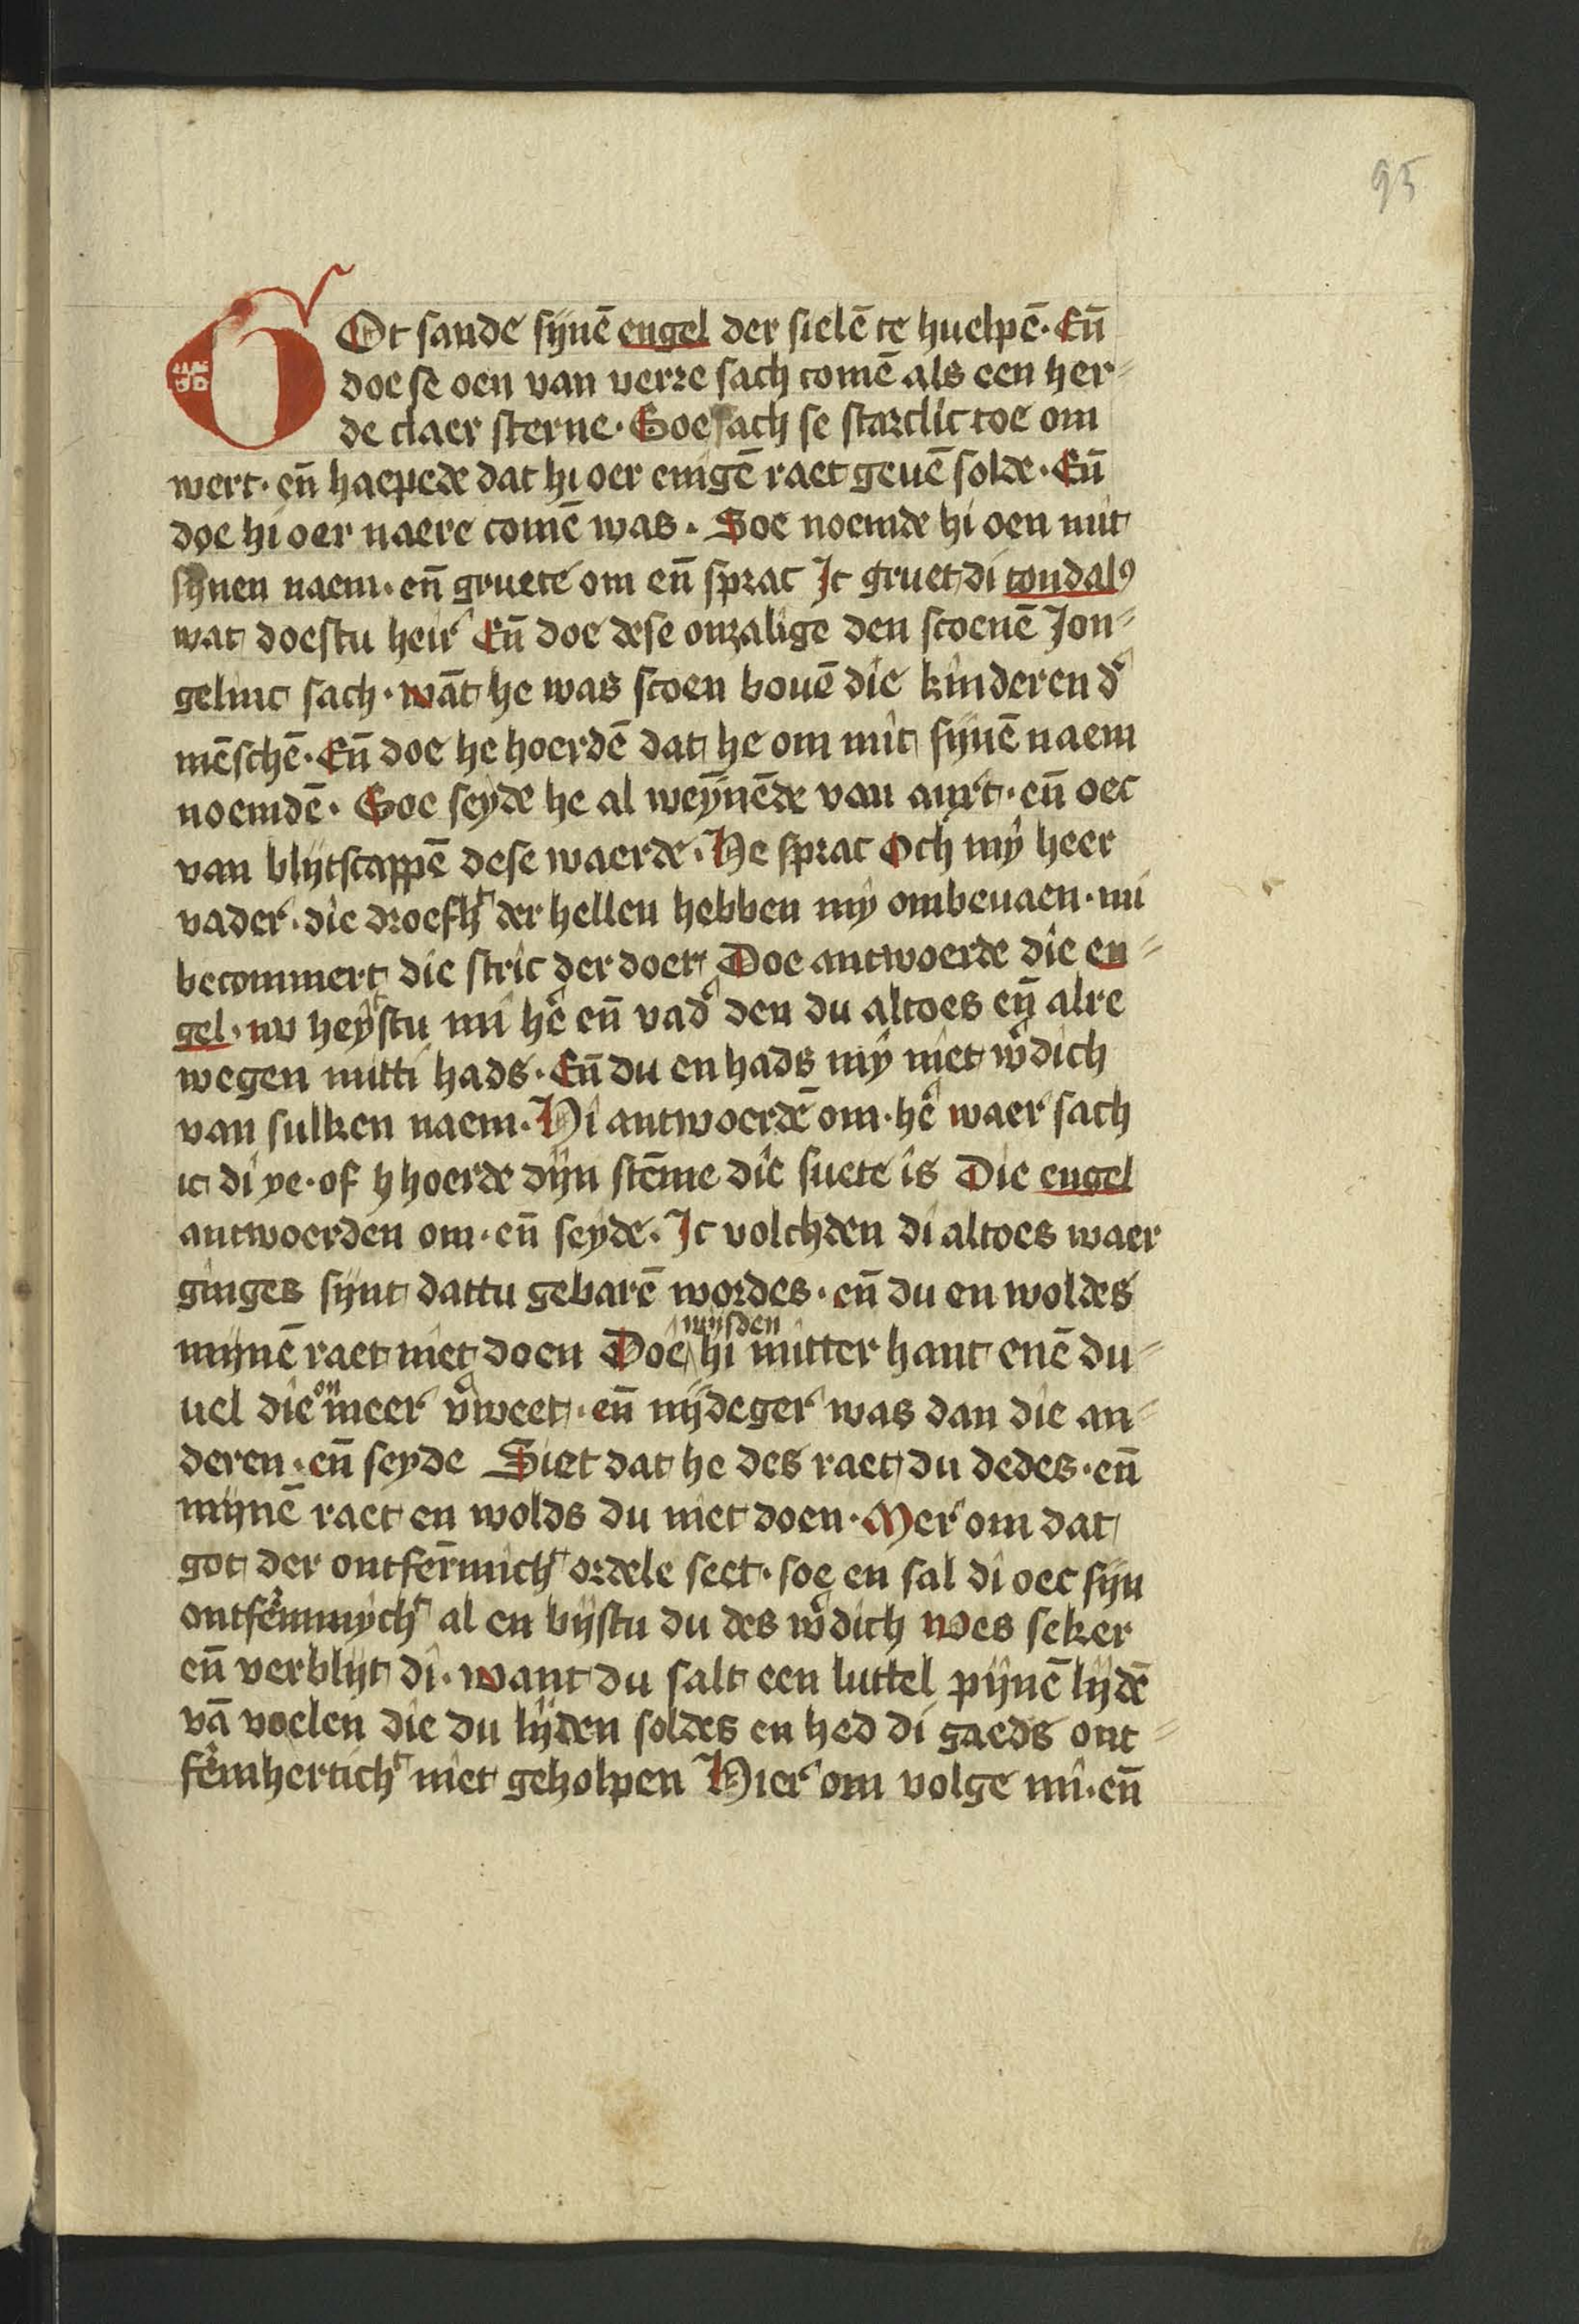 95
GOt sande sijnē engel der sielē te huelpē · Eñ
doe se oen van verre sach comē als een her⸗
de claer sterne · Soe sach se starclic toe om
wert · eñ haepede dat hi oer enigē raet geuē solde · Eñ
doe hi oer naere comē was · Soe noemde hi oen mit
sijnen naem · eñ gruete om eñ sprac Ic gruet di tondalꝰ
wat doestu heir Eñ doe dese onzalige den scoenē Jon⸗
gelinc sach · wāt he was scoen bouē die kinderen d'
mēschē · Eñ doe he hoerdē dat he om mit sijnē naem
noemdē · Soe seyde he al weynēde van anxt · eñ oec
van blijtscappē dese waerde · He sprac Och mÿ heer
vader · die droefht der hellen hebben mÿ ombeuaen · mi
becommert die stric der doet Doe antwoerde die en⸗
gel · nv heystu mi he' eñ vad' den du altoes eñ alre
wegen mitti hads · Eñ du en hads mÿ niet w'dich
van sulken naem · Hi antwoerdē om · he' waer sach
ic di ye · of hoerde dijn stēme die suete is Die engel
antwoerden om · eñ seyde · Ic volchden di altoes waer
ginges sijnt dattu gebarē wordes · eñ du en woldes
mijnē raet niet doen Doe wijsden hi mitter hant enē du⸗
uel die on meer v'weet · eñ nijdeger was dan die an⸗
deren · eñ seyde Siet dat he des raet du dedes · eñ
mijnē raet en wolds du niet doen · Mer om dat
got der ontfermicht ordele seet · soe en sal di oec sijn
ontfermmycht al en bijstu du des w'dich Wes seker
eñ verblijt di · want du salt een luttel pijnē lijdē
vā voelen die du lijden soldes en hed di gaeds ont⸗
fermherticht niet geholpen Hier om volge mi · eñ